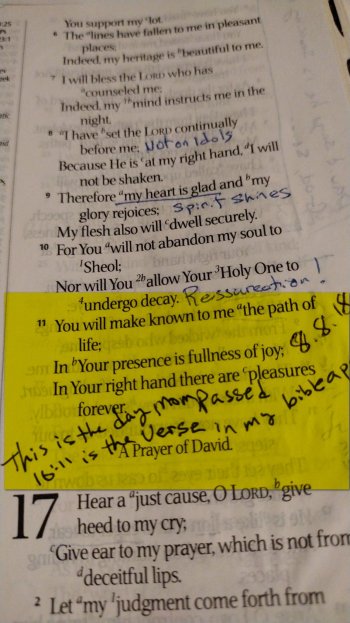 You support my ᵃlot.
6 The ᵃlines have fallen to me in pleasant
places;
Indeed, my heritage is ᵇbeautiful to me.
7 I will bless the LORD who has
ᵃcounseled me;
Indeed, my ¹ᵇmind instructs me in the
night.
8 ᵃI have ᵇset the LORD continually
before me; Not on Idols
Because He is ᶜat my right hand, ᵈI will
not be shaken.
9 Therefore ᵃmy heart is glad and ᵇmy
glory rejoices; Spirit Shines
My flesh also will ᶜdwell securely.
10 For You ᵃwill not abandon my soul to
¹Sheol;
Nor will You ²ᵇallow Your ³Holy One to
⁴undergo decay. Ressureation!
11 You will make known to me ᵃthe path of
life;
In ᵇYour presence is fullness of joy; 8.8.18
In Your right hand there are ᶜpleasures
forever.
This is the day mom Passed
16:11 is the Verse in my bible ap
A Prayer of David.
17 Hear a ᵃjust cause, O LORD, ᵇgive
heed to my cry;
ᶜGive ear to my prayer, which is not from
ᵈdeceitful lips.
2 Let ᵃmy ¹judgment come forth from